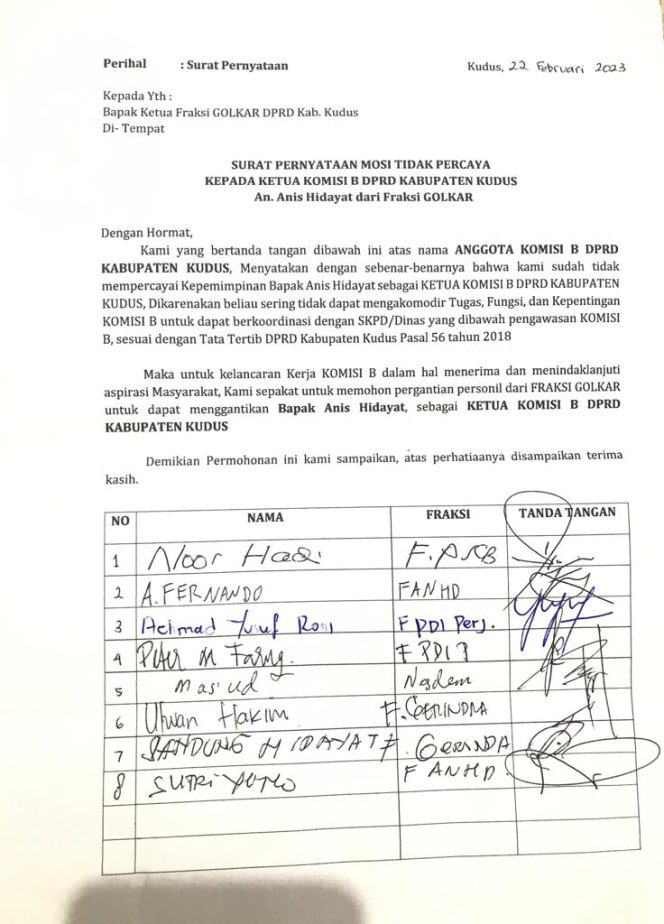 Perihal : Surat Pernyataan Kudus, 22 Februari 2023
Kepada Yth :
Bapak Ketua Fraksi GOLKAR DPRD Kab. Kudus
Di- Tempat
SURAT PERNYATAAN MOSI TIDAK PERCAYA
KEPADA KETUA KOMISI B DPRD KABUPATEN KUDUS
An. Anis Hidayat dari Fraksi GOLKAR
Dengan Hormat,
Kami yang bertanda tangan dibawah ini atas nama ANGGOTA KOMISI B DPRD
KABUPATEN KUDUS, Menyatakan dengan sebenar-benarnya bahwa kami sudah tidak
mempercayai Kepemimpinan Bapak Anis Hidayat sebagai KETUA KOMISI B DPRD KABUPATEN
KUDUS, Dikarenakan beliau sering tidak dapat mengakomodir Tugas, Fungsi, dan Kepentingan
KOMISI B untuk dapat berkoordinasi dengan SKPD/Dinas yang dibawah pengawasan KOMISI
B, sesuai dengan Tata Tertib DPRD Kabupaten Kudus Pasal 56 tahun 2018
Maka untuk kelancaran Kerja KOMISI B dalam hal menerima dan menindaklanjuti
aspirasi Masyarakat, Kami sepakat untuk memohon pergantian personil dari FRAKSI GOLKAR
untuk dapat menggantikan Bapak Anis Hidayat, sebagai KETUA KOMISI B DPRD
KABUPATEN KUDUS
Demikian Permohonan ini kami sampaikan, atas perhatiaanya disampaikan terima
kasih.
NO NAMA FRAKSI TANDA TANGAN
1 Noor Hadi F. PKB
2 A. FERNANDO FANHD
3 Achmad Yusuf Roni F PDI Perj.
4 Peter M F PDI P
5 Mas'ud Nasdem
6 Ulwan Hakim F. GERINDRA
7 SANDUNG HIDAYAT F. GERINDA
8 SUTRIYONO F ANHD.